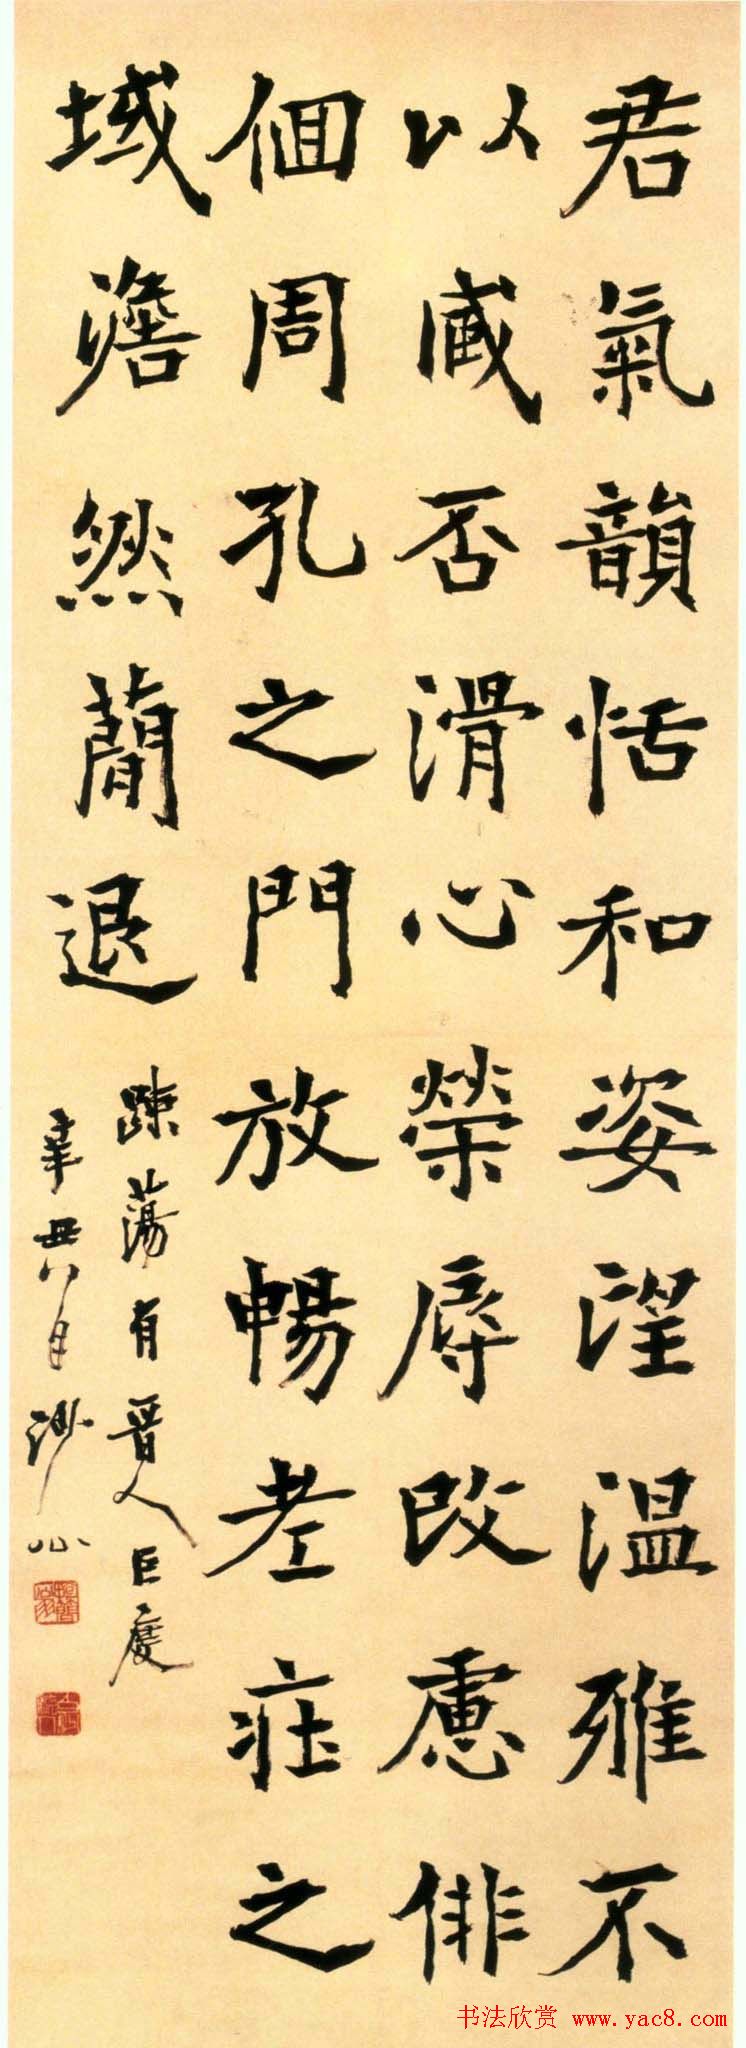 君氣韻恬和姿望温雅不
以臧否滑心榮辱改慮俳
佪周孔之門放暢老莊之
域澹然蕳退
踈蕩有晉人巨度
辛丑八月
书法欣赏 www.yac8.com